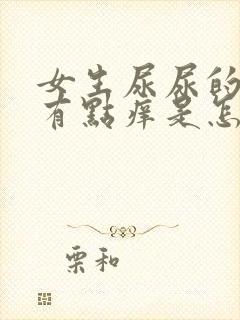 女生尿尿的
有點痒是怎
栗和